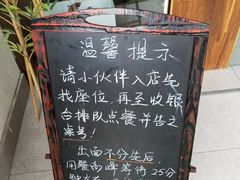 温馨提示
请小伙伴入店先
找座位,再至收银
台排队点餐并告之
桌号!
出面不分先后,
用餐高峰等待25分